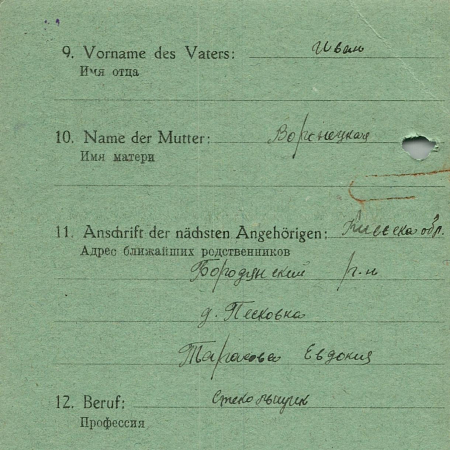 9. Vorname des Vaters: Иван
Имя отца
10. Name der Mutter: Воронецкая
Имя матери
11. Anschrift der nächsten Angehörigen: Киевская обр.
Адрес ближайших родственников
Бородянский р-н
д. Песковка
Тарасова Евдокия
12. Beruf: стекольщик
Профессия